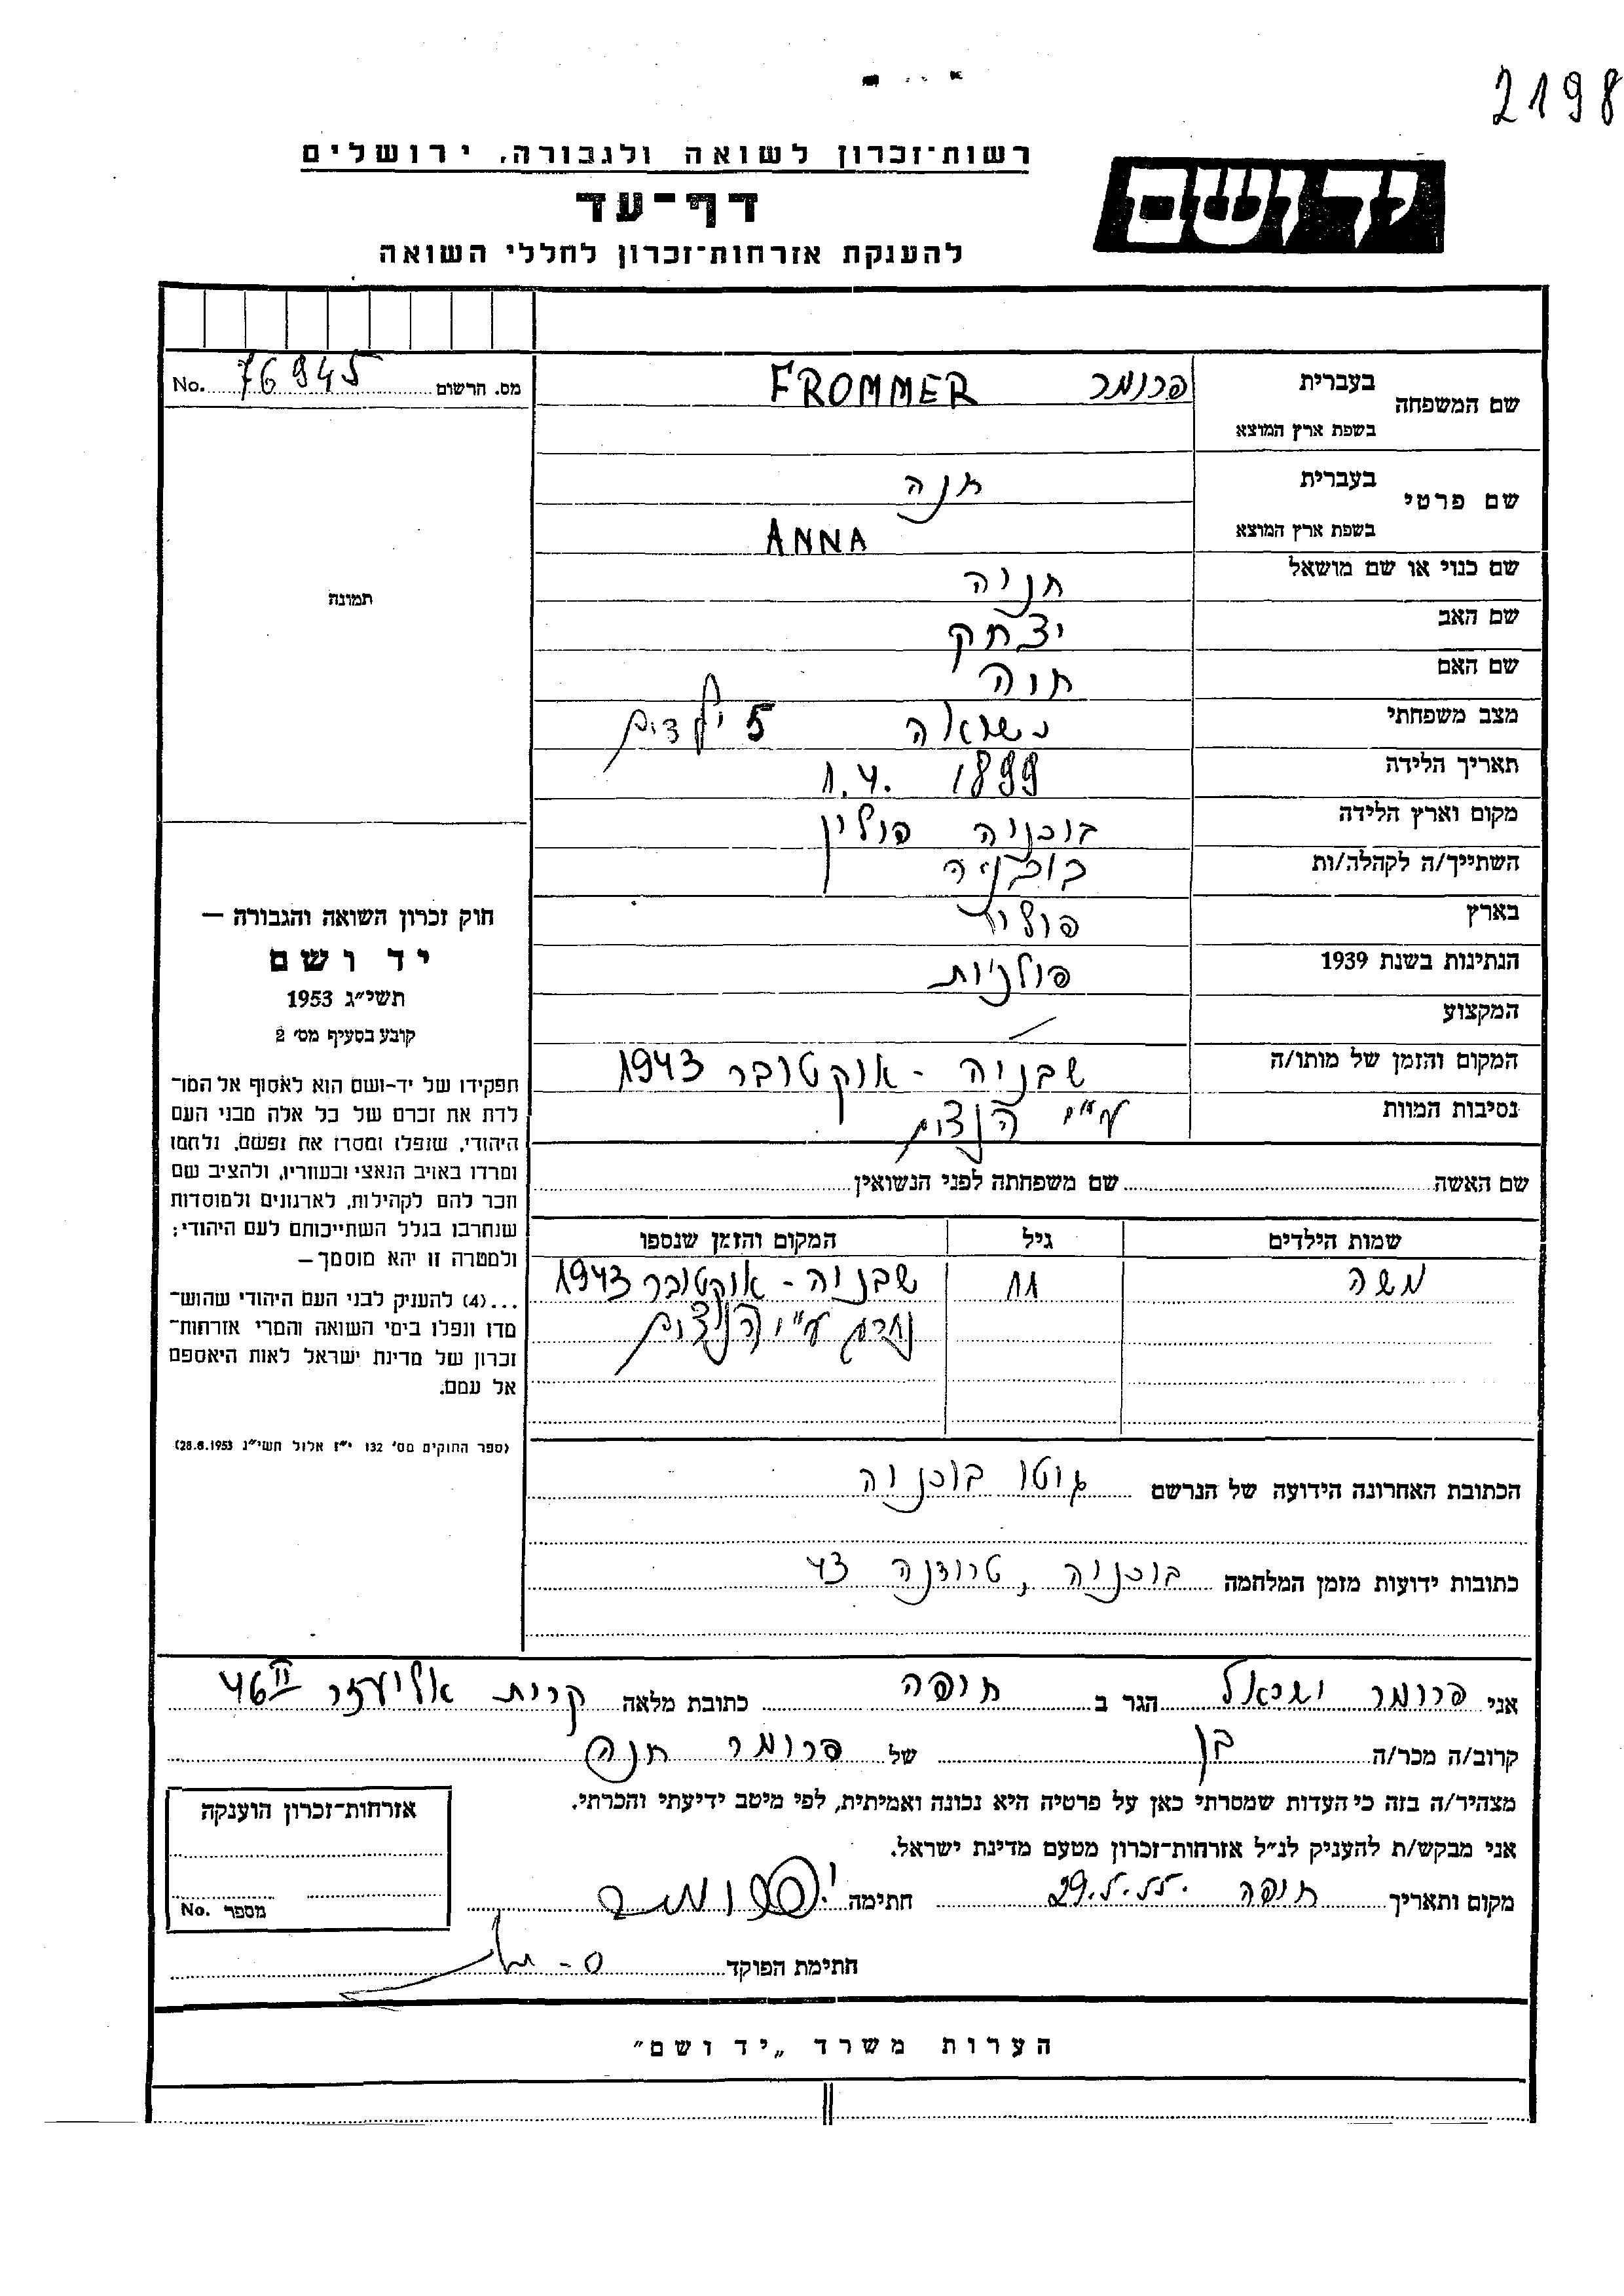 2198
רשות־זכרון לשואה ולגבורה, ירושלים
יד ושם
דף־עד
להענקת אזרחות־זכרון לחללי השואה
מס. הרשום 76945 No.
שם המשפחה
בעברית פרומר FROMMER
בשפת ארץ המוצא
שם פרטי
בעברית חנה
בשפת ארץ המוצא ANNA
שם כנוי או שם מושאל חניה
שם האב יצחק
שם האם חוה
מצב משפחתי נשואה 5 ילדים
תאריך הלידה 1899 1.4.
מקום וארץ הלידה בוכניה פולין
השתייך/ה לקהלה/ות בוכניה
בארץ פולין
הנתינות בשנת 1939 פולנית
המקצוע
המקום והזמן של מותו/ה שבניה - אוקטובר 1943
נסיבות המוות ע"י הנצים
שם האשה שם משפחתה לפני הנשואין
שמות הילדים גיל המקום והזמן שנספו
משה 11 שבניה - אוקטובר 1943
נהרג ע"י הנצים
הכתובת האחרונה הידועה של הנרשם גיטו בוכניה
כתובות ידועות מזמן המלחמה בוכניה, טרודנה 43
תמונה
חוק זכרון השואה והגבורה —
יד ושם
תשי״ג 1953
קובע בסעיף מס׳ 2
תפקידו של יד־ושם הוא לאסוף אל המו־
לדת את זכרם של כל אלה מבני העם
היהודי, שנפלו ומסרו את נפשם, נלחמו
ומרדו באויב הנאצי ובעוזריו, ולהציב שם
וזכר להם לקהילות, לארגונים ולמוסדות
שנחרבו בגלל השתייכותם לעם היהודי;
ולמטרה זו יהא מוסמך—
...(4) להעניק לבני העם היהודי שהוש־
מדו ונפלו בימי השואה והמרי אזרחות־
זכרון של מדינת ישראל לאות היאספם
אל עמם.
(ספר החוקים מס׳ 132 י״ז אלול תשי״ג 28.8.1953)
אני פרומר ישראל הגר ב חיפה כתובת מלאה קרית אליעזר 46 II
קרוב/ה מכר/ה בן של פרומר חנה
מצהיר/ה בזה כי העדות שמסרתי כאן על פרטיה היא נכונה ואמיתית, לפי מיטב ידיעתי והכרתי.
אני מבקש/ת להעניק לנ״ל אזרחות־זכרון מטעם מדינת ישראל.
מקום ותאריך חיפה 29.5.55. חתימה י. פרומר
חתימת הפוקד
אזרחות־זכרון הוענקה
מספר No.
הערות משרד „יד ושם״